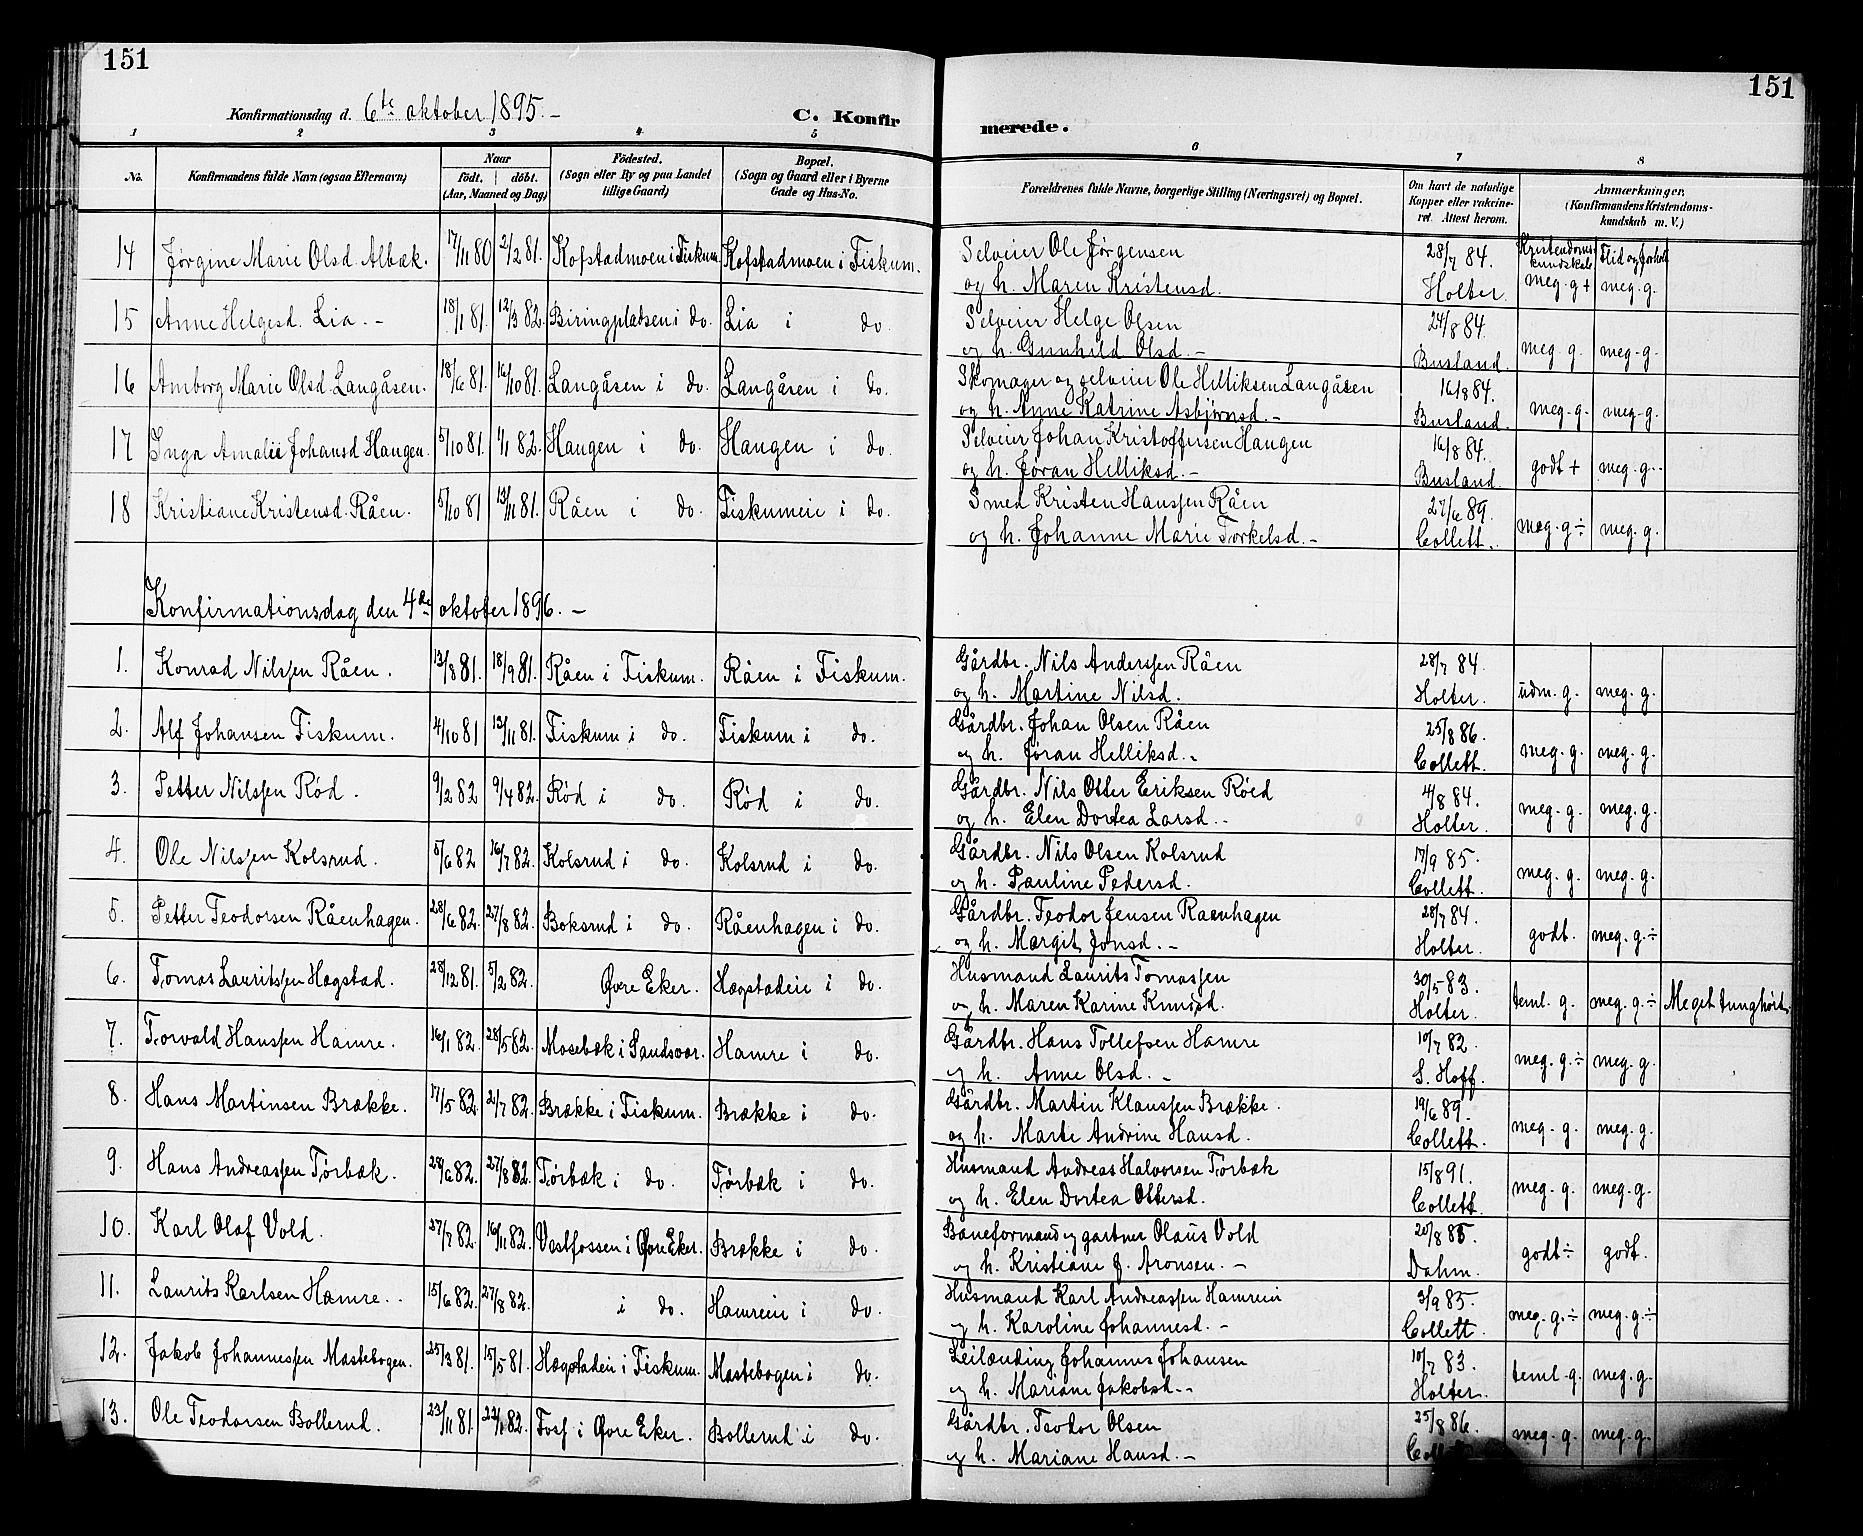 151
151
Konfirmationsdag d. 6te oktober 1895. –
C. Konfirmerede.
1 2 3 4 5 6 7 8
No. Konfirmandens fulde Navn (ogsaa Efternavn) Naar født. døbt. (Aar, Maaned og Dag) Fødested. (Sogn eller By og paa Landet tillige Gaard) Bopæl. (Sogn og Gaard eller i Byerne Gade og Hus-No. Forældrenes fulde Navne, borgerlige Stilling (Næringsvei) og Bopæl. Om havt de naturlige Kopper eller vakcineret. Attest herom. Anmærkninger, (Konfirmandens Kristendomskundskab m. V.)
Kristendomskundskab Flid og forhold
14 Jørgine Marie Olsd. Albæk. 17/11 80 2/2 81. Kofstadmoen i Fiskum. Kofstadmoen i Fiskum. Selveier Ole Jørgensen 28/7 84.
og h. Maren Kristensd. Holter. meg. g + meg. g.
15 Anne Helgesd. Lia. – 18/11 81. 12/3 82. Biringpladsen i do. Lia i do. Selveier Helge Olsen 24/8 84.
og h. Gunhild Olsd. – Busland. meg. g. meg. g.
16 Amborg Marie Olsd. Langåsen. 18/6 81. 16/10 81. Langåsen i do. Langåsen i do. Skomager og selveier Ole Helliksen Langåsen 16/8 84.
og h. Anne Katrine Asbjørnsd. – Busland. meg. g. meg. g.
17 Inga Amalie Johansd. Haugen. 5/10 81. 1/1 82. Haugen i do. Haugen i do. Selveier Johan Kristoffersen Haugen 16/8 84.
og h. Jøran Helliksd. – Busland. godt + meg. g.
18 Kristiane Kristensd. Råen. 5/10 81 13/11 81. Råen i do. Fiskumeie i do. Smed Kristen Hanssen Råen 27/6 89.
og h. Johanne Marie Torkelsd. – Collett. meg. g ÷ meg. g.
Konfirmationsdag den 4de oktober 1896. –
1. Konrad Nilssen Råen. 13/8 81. 18/9 81. Råen i Fiskum. Råen i Fiskum. Gårdbr. Nils Anderssen Råen 28/7 84.
og h. Martine Nilsd. Holter. udm. g. meg. g.
2. Alf Johansen Fiskum. 4/10 81 13/11 81. Fiskum i do. Fiskum i do. Gårdbr. Johan Olsen Råen 25/8 86.
og h. Jøran Helliksd. – Collett. meg. g. meg. g.
3. Petter Nilssen Rød. 9/2 82 9/4 82. Rød i do. Rød i do. Gårdbr. Nils Otter Eriksen Röed 4/8 84.
og h. Elen Dortea Larsd. – Holter. meg. g. meg. g.
4. Ole Nilssen Kolsrud. 5/6 82 16/7 82. Kolsrud i do. Kolsrud i do. Gårdbr. Nils Olsen Kolsrud 17/9 85.
og h. Pauline Pedersd. Collett. meg. g. meg. g.
5. Petter Teodorsen Råenhagen. 28/6 82. 27/8 82. Boksrud i do. Råenhagen i do. Gårdbr. Teodor Jensen Raaenhagen 28/7 84.
og h. Margit Jonsd. – Holter. godt. meg. g. ÷
6. Tomas Lauritssen Hagstad. 28/12 81. 5/2 82. Øvre Eker. Hagstadeie i do. Husmand Laurits Tomassen 30/5 83.
og h. Maren Karine Knudsd. Holter. teml. g. meg. g. ÷ Meget tunghørt.
7. Torvald Hanssen Hamre. 16/1 82. 28/5 82. Mosebæk i Sandsvær. Hamre i do. Gårdbr. Hans Tollefsen Hamre 10/7 82.
og h. Anne Olsd. – S. Hoff. meg. g. ÷ meg. g.
8. Hans Martinsen Brække. 17/5 82. 2/7 82. Brække i Fiskum. Brække i do. Gårdbr. Martin Klaussen Brække. 19/6 89.
og h. Marte Andrine Hansd. Collett. meg. g. meg. g.
9. Hans Andreassen Tørbæk. 28/6 82. 27/8 82. Tørbæk i do. Tørbæk i do. Husmand Andreas Halvorsen Tørbæk 15/8 91.
og h. Elen Dortea Ottersd. Collett. meg. g. meg. g.
10. Karl Olaf Vold. 27/7 82. 16/11 82. Vestfossen i Øvre Eker. Brække i do. Baneformand og gartner Olaus Vold 20/8 85.
og h. Kristiane J. Aronsen. – Dahm. godt ÷ godt.
11. Laurits Karlsen Hamre. 15/6 82. 27/8 82. i do. Hamreie i do. Husmand Karl Andreassen Hamreie 3/9 85.
og h. Karoline Johannesd. – Collett. meg. g. ÷ meg. g. ÷
12. Jakob Johannessen Mastebogen. 25/3 81. 15/5 81. Hagstadeie i Fiskum. Mastebogen i do. Leilænding Johannes Johansen 10/7 83.
og h. Mariane Jakobsd. – Holter. teml. g. meg. g.
13. Ole Teodorsen Bollerud. 23/11 81. 22/1 82. Foss i Øvre Eker. Bollerud i do. Gårdbr. Teodor Olsen 25/8 86.
og h. Mariane Hansd. – meg. g. meg. g.